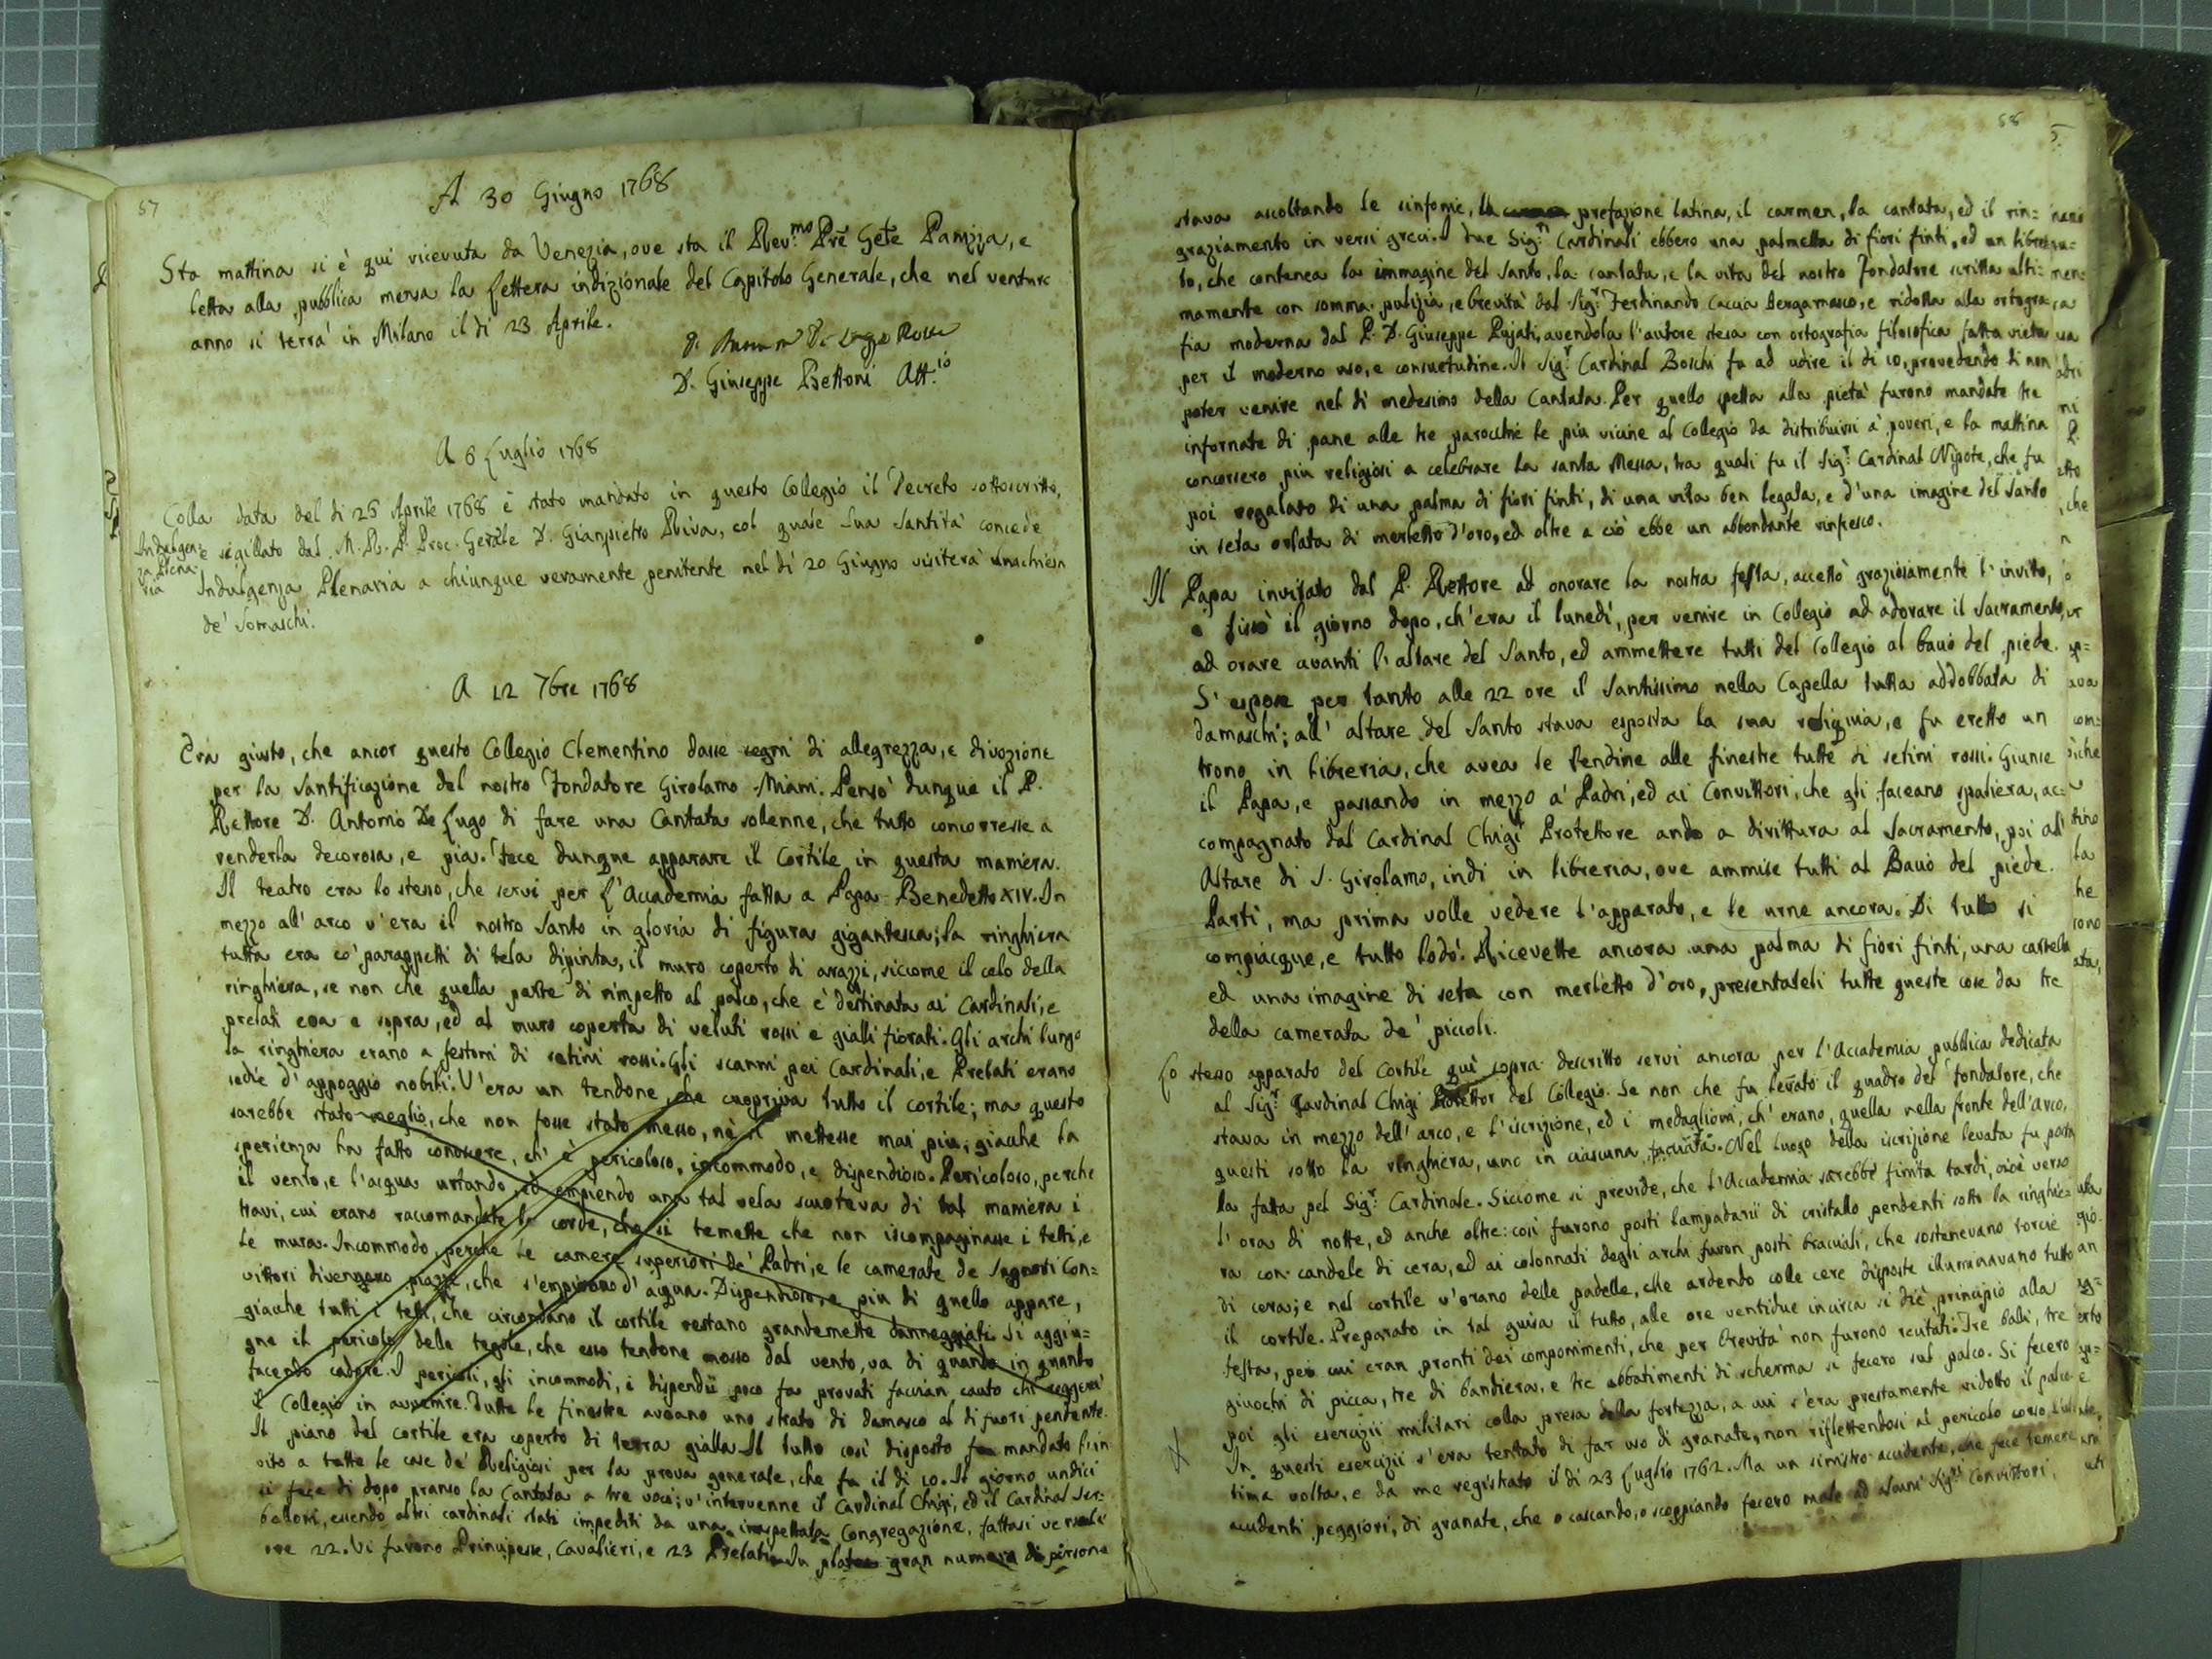 57
A 30 Giugno 1768
Sta mattina si è qui ricevuta da Venezia, ove sta il Rev.mo Pre Gele Panizza, e
letta alla pubblica mensa la Lettera indizionale del Capitolo Generale, che nel venturo
anno si terrà in Milano il di 23 Aprile.
D. Giuseppe Bettoni Att.io
A 6 Luglio 1768
Colla data del di 26 Aprile 1768 è stato mandato in questo Collegio il Decreto sottoscritto,
e sigillato dal M. R. P. Proc. Gerãle D. Gianpietro Riva, col quale Sua Santità concede
Indulgen=
za Plena
ria
Indulgenza Plenaria a chiunque veramente penitente nel dì 20 Giugno visiterà una chiesa
de' Somaschi.
A 12 7bre 1768
Era giusto, che ancor questo Collegio Clementino dasse segni di allegrezza, e divozione
per la Santificazione del nostro Fondatore Girolamo Miani. Pensò dunque il P.
Rettore D. Antonio De Lugo di fare una Cantata solenne, che tutto concorresse a
renderla decorosa, e pia. Fece dunque apparare il Cortile in questa maniera.
Il teatro era lo stesso, che servi per l'Accademia fatta a Papa Benedetto XIV. In
mezzo all' arco v'era il nostro Santo in gloria di figura gigantesca; la ringhiera
tutta era co' parappetti di tela dipinta, il muro coperto di arazzi, siccome il celo della
ringhiera, se non che quella parte di rimpetto al palco, che è destinata ai Cardinali, e
prelati era e sopra, ed al muro coperta di veluti rossi e gialli fiorati. Gli archi lungo
la ringhiera erano a festoni di setini rossi. Gli scanni pei Cardinali, e Prelati erano
sedie d'appoggio nobili. V'era un tendone, che cuopriva tutto il cortile; ma questo
sarebbe stato meglio, che non fosse stato messo, nè si mettesse mai più; giacche la
sperienza ha fatto conoscere, ch' è pericoloso, incommodo, e dispendioso. Pericoloso, perche
il vento, e l'acqua urtando, ed empiendo una tal vela scuoteva di tal maniera i
travi, cui erano raccomandate le corde, che si temette che non iscompaginasse i tetti, e
le mura. Incommodo, perche le camere superiori de' Padri, e le camerate de Signori Con=
vittori divengono piazze, che s'empirono d'acqua. Dispendioso, e più di quello appare,
giacche tutti i tetti, che circondano il cortile restano grandemente danneggiati. Si aggiu=
gne il pericolo delle tegole, che esso tendone mosso dal vento, va di quando in quando
facendo cadere. I pericoli, gli incommodi, i dispendii poco fa provati faccian cauto chi reggerà
il Collegio in avvenire. Tutte le finestre aveano uno strato di damasco al di fuori pendente.
Il piano del cortile era coperto di terra gialla. Il tutto così disposto fu mandato l'in
vito a tutte le case de' Religiosi per la prova generale, che fu il di 10. Il giorno undici
si fece di dopo pranso la Cantata a tre voci; v'intervenne il Cardinal Chigi, ed il Cardinal Ser=
belloni, essendo altri cardinali stati impediti da una inaspettata Congregazione, fattasi verso le
ore 22. Vi furono Principesse, Cavalieri, e 23 Prelati. In platea gran numero di persone
58
stava ascoltando le sinfonie, la prefazione latina, il carmen, la cantata, ed il rin=
graziamento in versi greci. I due Sig.ri Cardinali ebbero una palmetta di fiori finti, ed un libret
to, che contenea la immagine del Santo, la cantata, e la vita del nostro Fondatore scritta alti=
mamente con somma pulizia, e brevità dal Sig.r Ferdinando Caccia Bergamasco, e ridotta alla ortogra
fia moderna dal P. D. Giuseppe Pujati, avendola l'autore stesa con ortografia filosofica fatta vieta
per il moderno uso, e consuetudine. Il Sig.r Cardinal Boschi fu ad udire il di 10, provedendo di non
poter venire nel dì medesimo della Cantata. Per quello spetta alla pietà furono mandate tre
infornate di pane alle tre parocchie le più vicine al Collegio da distribuirsi a' poveri, e la mattina
concorsero più religiosi a celebrare la santa Messa, tra quali fu il Sig.r Cardinal Nipote, che fu
poi regalato di una palma di fiori finti, di una vita ben legata, e d'una imagine del Santo
in seta orlata di merletto d'oro, ed oltre a ciò ebbe un abbondante rinfresco.
Il Papa invitato dal P. Rettore ad onorare la nostra festa, accettò graziosamente l'invito,
e fissò il giorno dopo, ch'era il lunedì, per venire in Collegio ad adorare il Sacramento,
ad orare avanti l'altare del Santo, ed ammettere tutti del Collegio al bacio del piede.
S' espose per tanto alle 22 ore il Santissimo nella Capella tutta addobbata di
damaschi; all' altare del Santo stava esposta la sua reliquia, e fu eretto un
trono in libreria, che avea le tendine alle finestre tutte di setini rossi. Giunse
il Papa, e passando in mezzo a' Padri, ed ai Convittori, che gli faceano spaliera, ac=
compagnato dal Cardinal Chigi Protettore andò a dirittura al Sacramento, poi all'
Altare di S. Girolamo, indi in libreria, ove ammise tutti al Bacio del piede.
Partì, ma prima volle vedere l'apparato, e le urne ancora. Di tutto si
compiacque, e tutto lodò. Ricevette ancora una palma di fiori finti, una cartella
ed una imagine di seta con merletto d'oro, presentateli tutte queste cose da tre
della camerata de' piccoli.
Lo stesso apparato del Cortile quì sopra descritto servi ancora per l'Accademia pubblica dedicata
al Sig.r Cardinal Chigi Protettor del Collegio. Se non che fu levato il quadro del Fondatore, che
stava in mezzo dell' arco, e l'iscrizione, ed i medaglioni, ch' erano, quella nella fronte dell'arco,
questi sotto la ringhiera, uno in ciascuna facciata. Nel luogo della iscrizione levata fu posta
la fatta pel Sig.r Cardinale. Siccome si previde, che l'Accademia sarebbe finita tardi, cioè verso
l' ora di notte, ed anche oltre: così furono posti lampadarii di cristallo pendenti sotto la ringhie=
ra con candele di cera, ed ai colonnati degli archi furon posti bracciali, che sostenevano torcie
di cera; e nel cortile v'erano delle padelle, che ardendo colle cere disposte illuminavano tutto
il cortile. Preparato in tal guisa il tutto, alle ore ventidue incirca si diè principio alla
festa, per cui eran pronti dei componimenti, che per brevità non furono recitati. Tre balli, tre
giuochi di picca, tre di bandiera, e tre abbatimenti di scherma si fecero sul palco. Si fecero
poi gli esercizii militari colla presa della fortezza, a cui s'era prestamente ridotto il palco.
In questi esercizii s'era tentato di far uso di granate, non riflettendosi al pericolo corso l'ul
tima volta, e da me registrato il di 23 Luglio 1762. Ma un sinistro accidente, che fece temere
accidenti peggiori, di granate, che o cascando, o scoppiando fecero male ad alcuni Sig.ri Convittori,